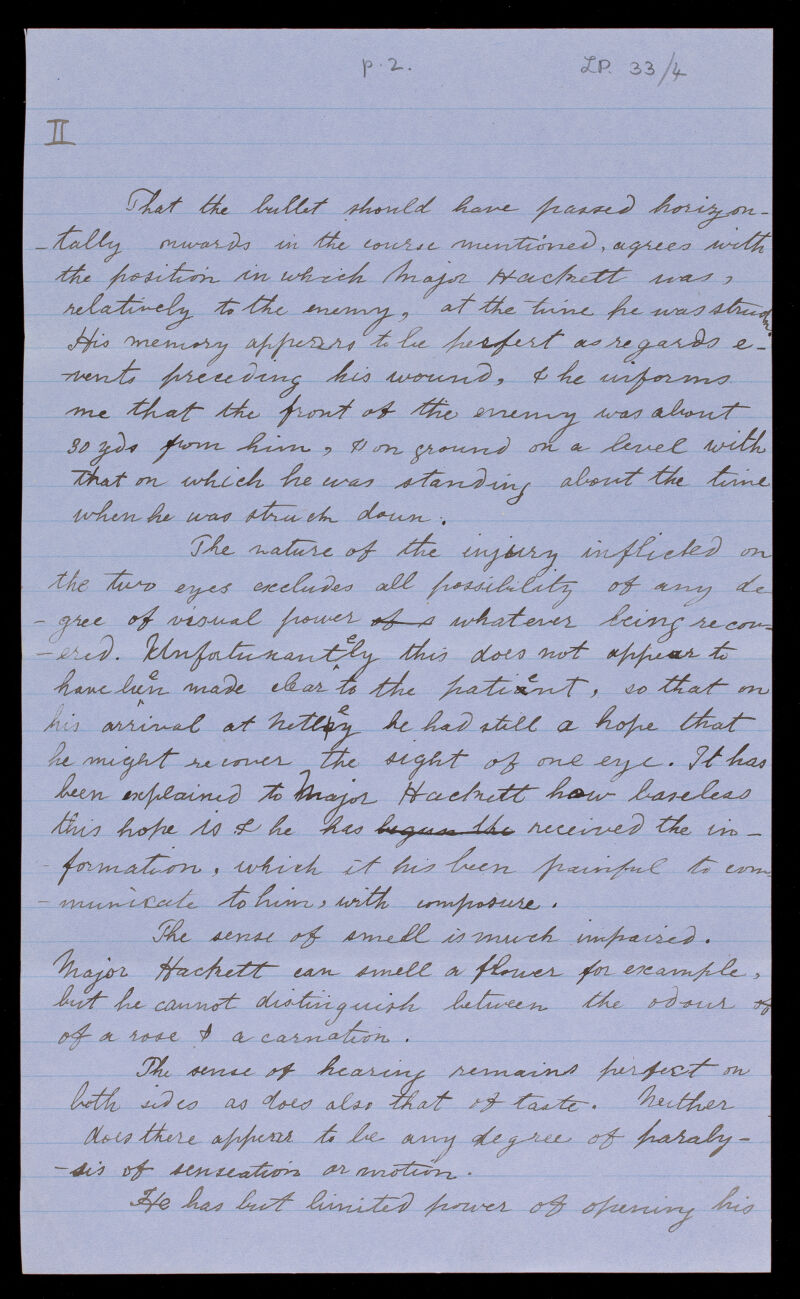 p. 2.
LP. 33/4
II
That the bullet should have passed horizon-
-tally onwards in the course mentioned, agrees with
the position in which Major Hackett was,
relatively to the enemy, at the time he was struck.
His memory appears to be perfect as regards e-
-vents preceding his wound, & he informs
me that the front of the enemy was about
30 yds from him, & on ground on a level with
that on which he was standing about the time
when he was struck down.
The nature of the injury inflicted on
the two eyes excludes all possibility of any de
-gree of visual power of a whatever being recov-
-ered. Unfortunantely this does not appear to
have been made clear to the patient, so that on
his arrival at Netley he had still a hope that
he might recover the sight of one eye. It has
been explained to Major Hackett how baseless
this hope is & he has begun the received the in-
-formation, which it his been painful to com
-municate to him, with composure.
The sense of smell is much impaired.
Major Hackett can smell a flower for example,
but he cannot distinguish between the odour of
of a rose & a carnation.
The sense of hearing remains perfect on
both sides as does also that of taste. Neither
does there appear to be any degree of paraly-
-sis of senseation or motion.
He has but limited power of opening his